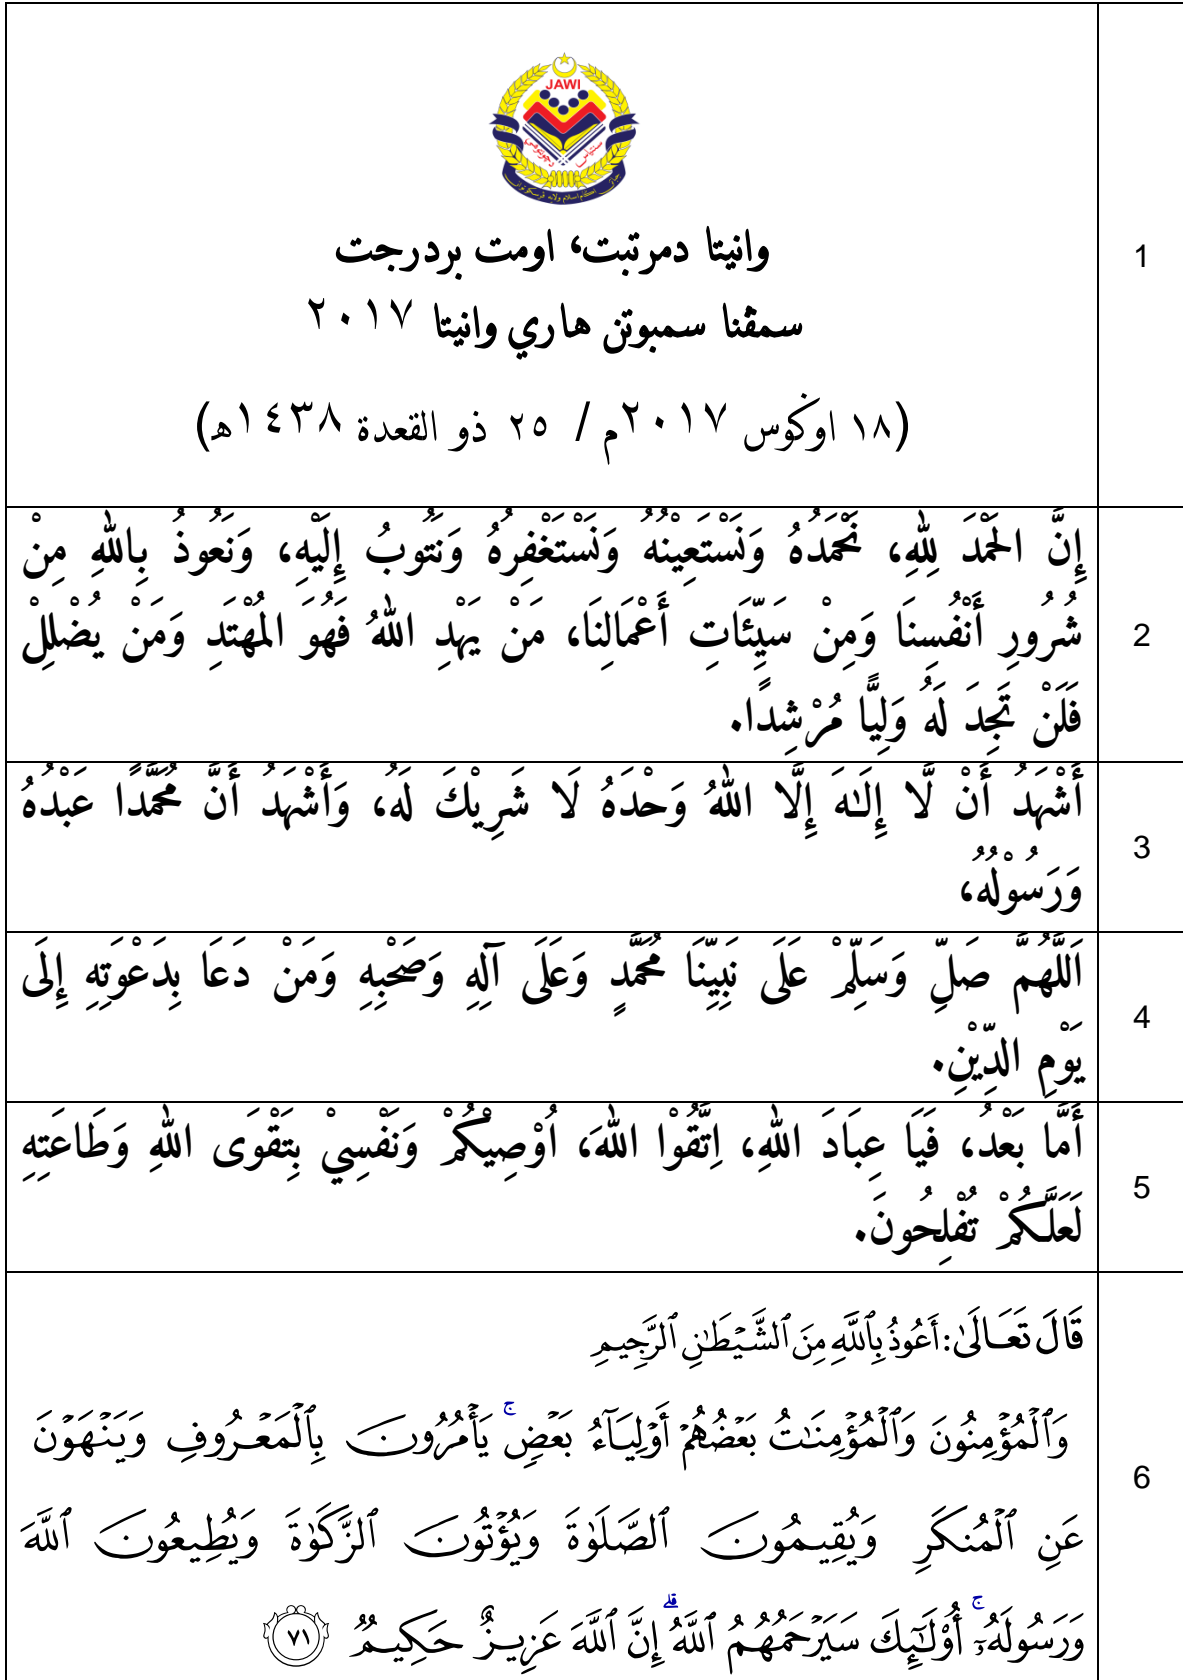 JAWI
وانيتا دمرتبت، اومت بردرجت
سمڤنا سمبوتن هاري وانيتا ٢٠١٧
(١٨ اوݢوس ٢٠١٧م / ٢٥ ذو القعدة ١٤٣٨ه)
1
إِنَّ الْحَمْدَ لِلَّهِ، نَحْمَدُهُ وَنَسْتَعِيْنُهُ وَنَسْتَغْفِرُهُ وَنَتُوبُ إِلَيْهِ، وَنَعُوذُ بِاللَّهِ مِنْ
شُرُورِ أَنْفُسِنَا وَمِنْ سَيِّئَاتِ أَعْمَالِنَا، مَنْ يَهْدِ اللهُ فَهُوَ الْمُهْتَدِ وَمَنْ يُضْلِلْ
فَلَنْ تَجِدَ لَهُ وَلِيًّا مُرْشِدًا.
2
أَشْهَدُ أَنْ لَّا إِلَـٰهَ إِلَّا اللهُ وَحْدَهُ لَا شَرِيْكَ لَهُ، وَأَشْهَدُ أَنَّ مُحَمَّدًا عَبْدُهُ
وَرَسُوْلُهُ،
3
اَللَّهُمَّ صَلِّ وَسَلِّمْ عَلَى نَبِيِّنَا مُحَمَّدٍ وَعَلَى آلِهِ وَصَحْبِهِ وَمَنْ دَعَا بِدَعْوَتِهِ إِلَى
يَوْمِ الدِّيْنِ.
4
أَمَّا بَعْدُ، فَيَا عِبَادَ اللهِ، اِتَّقُوْا اللهَ، اُوْصِيْكُمْ وَنَفْسِيْ بِتَقْوَى اللهِ وَطَاعَتِهِ
لَعَلَّكُمْ تُفْلِحُونَ.
5
قَالَ تَعَالَىٰ: أَعُوذُ بِٱللَّهِ مِنَ ٱلشَّيْطَٰنِ ٱلرَّجِيمِ
وَٱلْمُؤْمِنُونَ وَٱلْمُؤْمِنَٰتُ بَعْضُهُمْ أَوْلِيَآءُ بَعْضٍ ۚ يَأْمُرُونَ بِٱلْمَعْرُوفِ وَيَنْهَوْنَ
عَنِ ٱلْمُنكَرِ وَيُقِيمُونَ ٱلصَّلَوٰةَ وَيُؤْتُونَ ٱلزَّكَوٰةَ وَيُطِيعُونَ ٱللَّهَ
وَرَسُولَهُۥٓ ۚ أُو۟لَٰٓئِكَ سَيَرْحَمُهُمُ ٱللَّهُ ۗ إِنَّ ٱللَّهَ عَزِيزٌ حَكِيمٌ ٧١
6